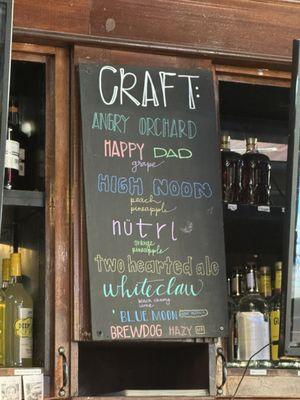 CRAFT
CRAFT:
ANGRY ORCHARD
HAPPY DAD
grape
HIGH NOON
peach
pineapple
nütrl
orange
pineapple
two hearted ale
whiteclaw
black cherry
lime
BLUE MOON
BREWDOG HAZY
DEEP